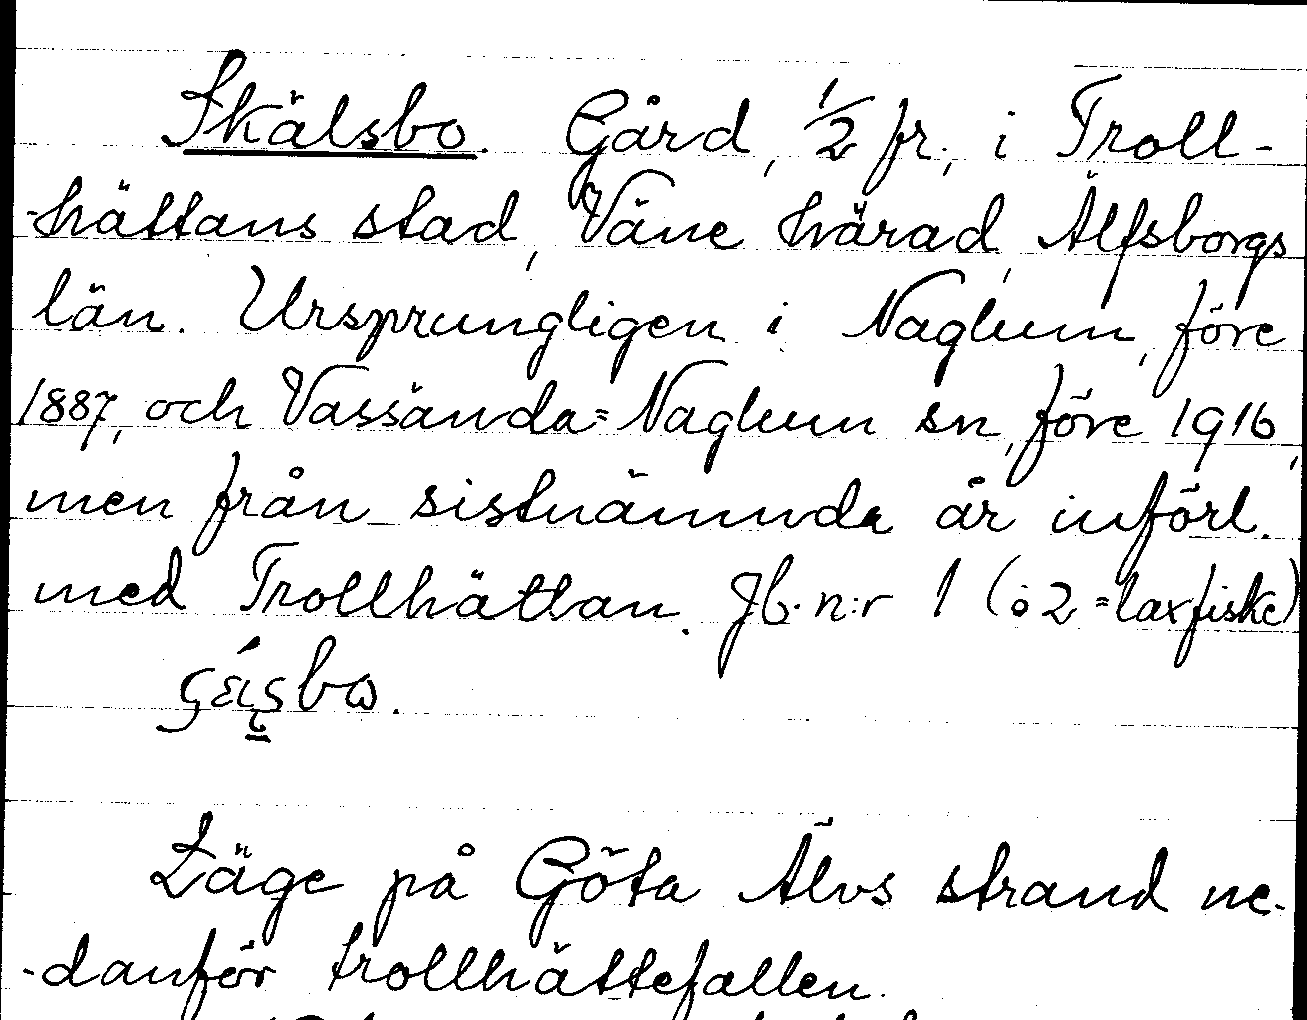 Skälsbo. Gård, 1/2 fr., i Troll-
-hättans stad, Väne härad, Älfsborgs
län. Ursprungligen i Naglum, före
1887, och Vassända=Naglum sn, före 1916,
men från sistnämnda år införl.
med Trollhättan. Jb. n:r 1 (o 2 = laxfiske)
Läge på Göta Älvs strand ne-
-danför trollhättefallen.